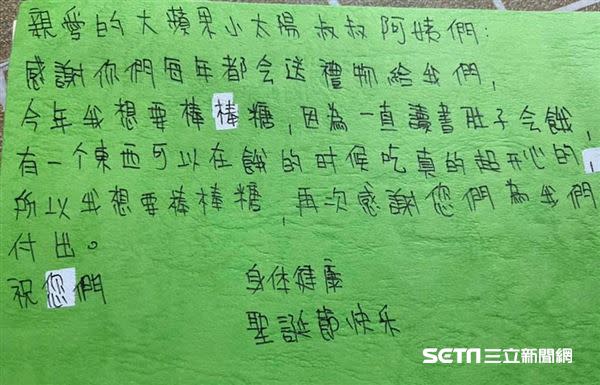 親愛的大蘋果小太陽叔叔阿姨們:
感謝你們每年都会送禮物給我們,
今年我想要棒棒糖,因為一直讀書肚子会餓,
有一个東西可以在餓的时候吃真的超开心的,
所以我想要棒棒糖,再次感謝您們為我們
付出。
祝您們
身体健康
聖誕節快乐
SETN三立新聞網